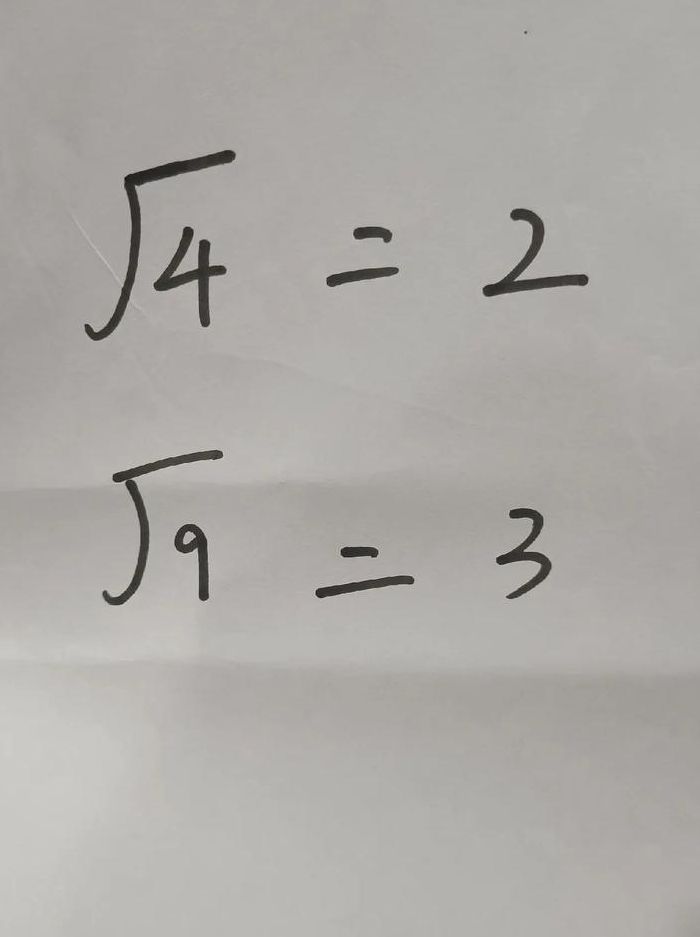 √4 = 2
√9 = 3